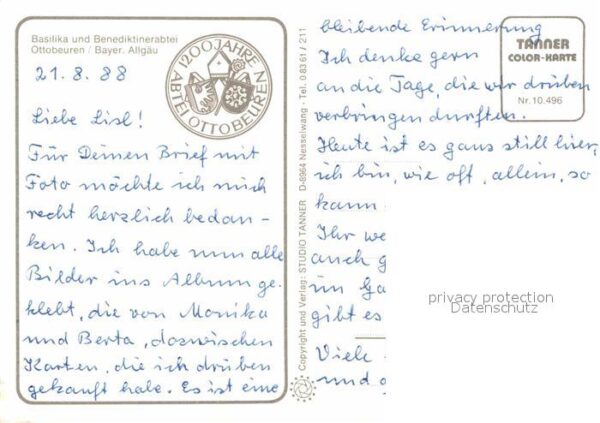 Basilika und Benediktinerabtei
Ottobeuren / Bayer. Allgäu
1200 JAHRE
ABTEI OTTOBEUREN
21. 8. 88
Liebe Lisl!
Für Deinen Brief mit
Foto möchte ich mich
recht herzlich bedan-
ken. Ich habe nun alle
Bilder ins Album ge-
klebt, die von Monika
und Berta, dazwischen
Karten, die ich drüben
gekauft habe. Es ist eine
Copyright und Verlag: STUDIO TANNER D-8964 Nesselwang · Tel. 0 83 61 / 211
bleibende Erinnerung
Ich denke gern
an die Tage, die wir drüben
verbringen durften.
Heute ist es ganz still hier,
ich bin, wie oft, allein, so
kann
Ihr we
auch g
im Ga
gibt es
Viele
und g
TANNER
COLOR-KARTE
Nr. 10.496
privacy protection
Datenschutz